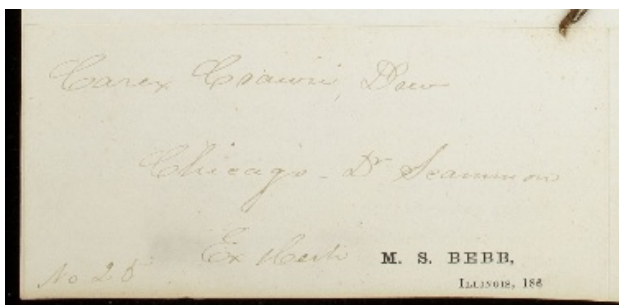 Carex Crawei, Dew
Chicago - Dr Scammon
Ex Herb. M. S. BEBB,
No 25 ILLINOIS, 186